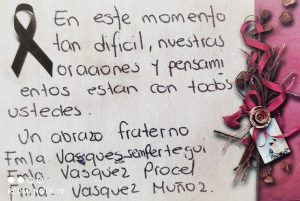 En este momento
tan dificil, nuestras
oraciones y pensami
entos estan con todos
ustedes.
Un abrazo fraterno
Fmla. Vasquez Sempertegui
Fmla. Vasquez Procel
Fmla. Vasquez Muñoz.